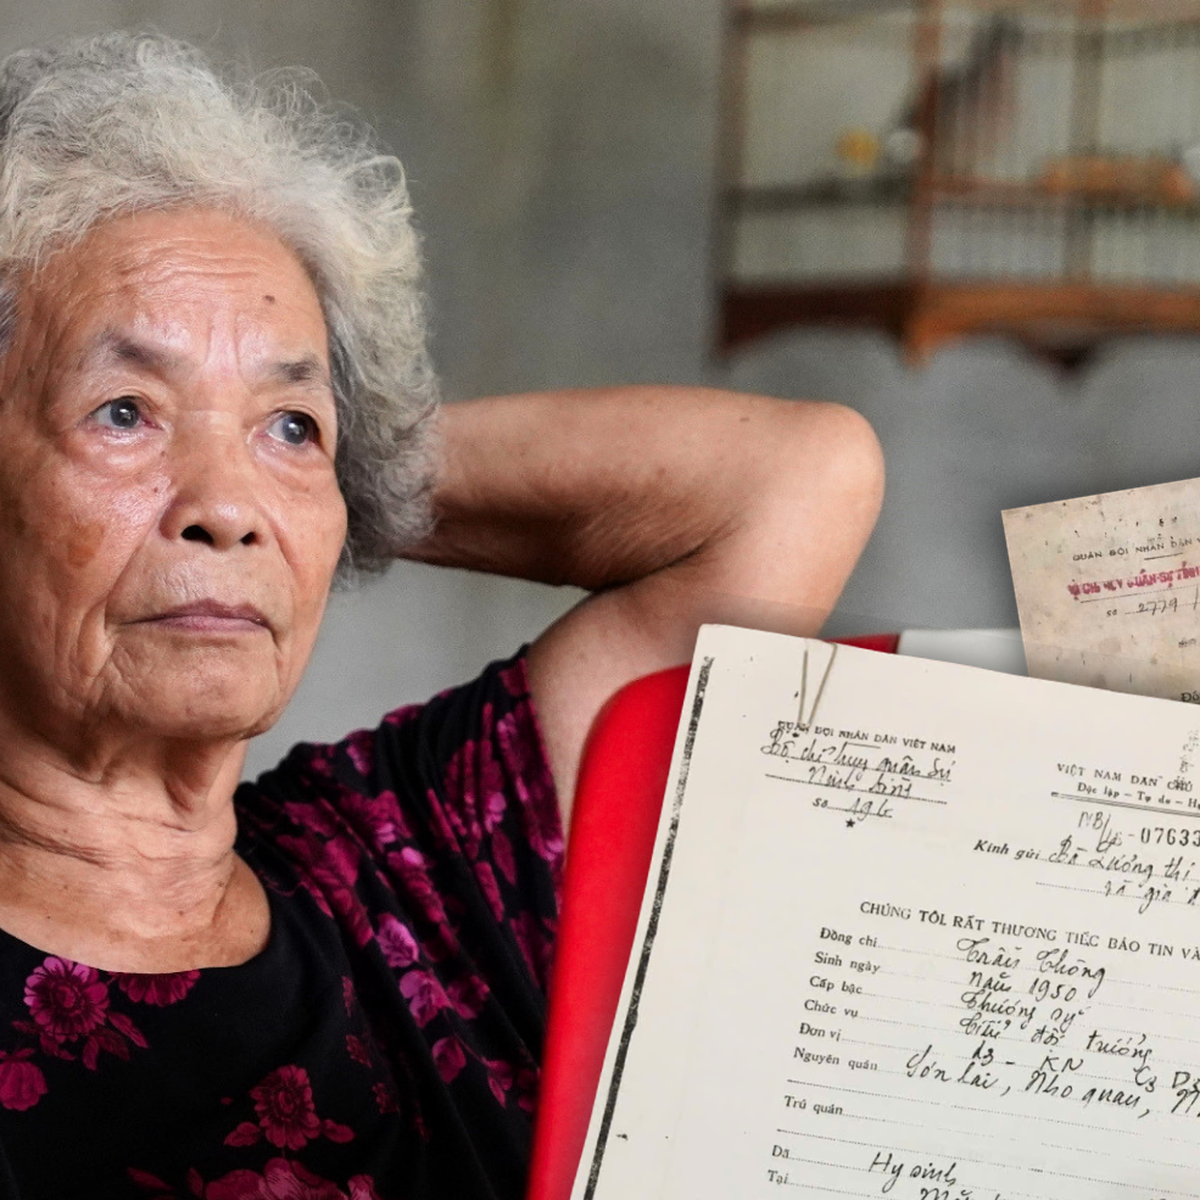 QUÂN ĐỘI NHÂN DÂN V
số 2779 /
QUÂN ĐỘI NHÂN DÂN VIỆT NAM
Bộ chỉ huy quân sự
Ninh bình
số 196
VIỆT NAM DÂN CHỦ
Độc lập - Tự do - H
NB/ - 07633
Kính gửi Bà Lương thị
và gia
CHÚNG TÔI RẤT THƯƠNG TIẾC BÁO TIN VÀ
Đồng chí Trần Thông
Sinh ngày năm 1950
Cấp bậc Thượng sỹ
Chức vụ Tiểu đội trưởng
Đơn vị d3 - KN
Nguyên quán Sơn lai, Nho quan, N
Trú quán
Đã Hy sinh
Tại